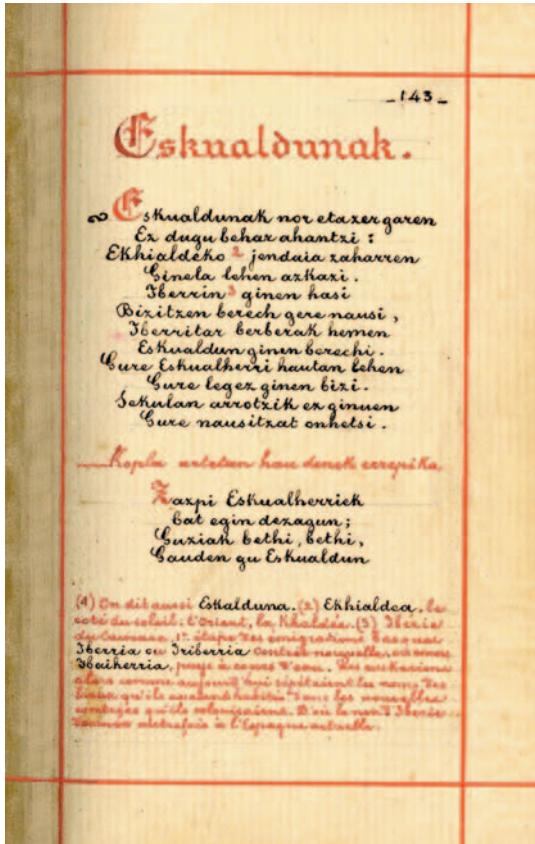 _143_
Eskualdunak.
Eskualdunak nor eta zer garen
Ez dugu behar ahantzi :
Ekhialdeko 2 jendaia zaharren
Ginela lehen azkazi.
Iberrin 3 ginen hasi
Bizitzen berech gere nausi,
Iberritar berberak hemen
Eskualdun ginen berechi.
Gure Eskualherri hautan lehen
Gure legez ginen bizi.
Sekulan arrotzik ez ginuen
Gure nausitzat onhetsi.
Kopla artetan hau denek errepika
Zazpi Eskualherriek
bat egin dezagun;
Guziak bethi, bethi,
Gauden gu Eskualdun
(1) On dit aussi Eskalduna. (2) Ekhialdea, le
coté du soleil; l'Orient, la Khaldée. (3) Iberie
du Caucase 1re étape des émigrations basques
Iberria ou Iriberria contrée nouvelle, ou
Ibaiherria, pays à cours d'eau. Les
alors comme aujourd'hui répétaient les noms des
lieux qu'ils avaient habités dans les nouvelles
contrées qu'ils colonisaient. D'où le nom d'Iberie
autrefois à l'Espagne actuelle.